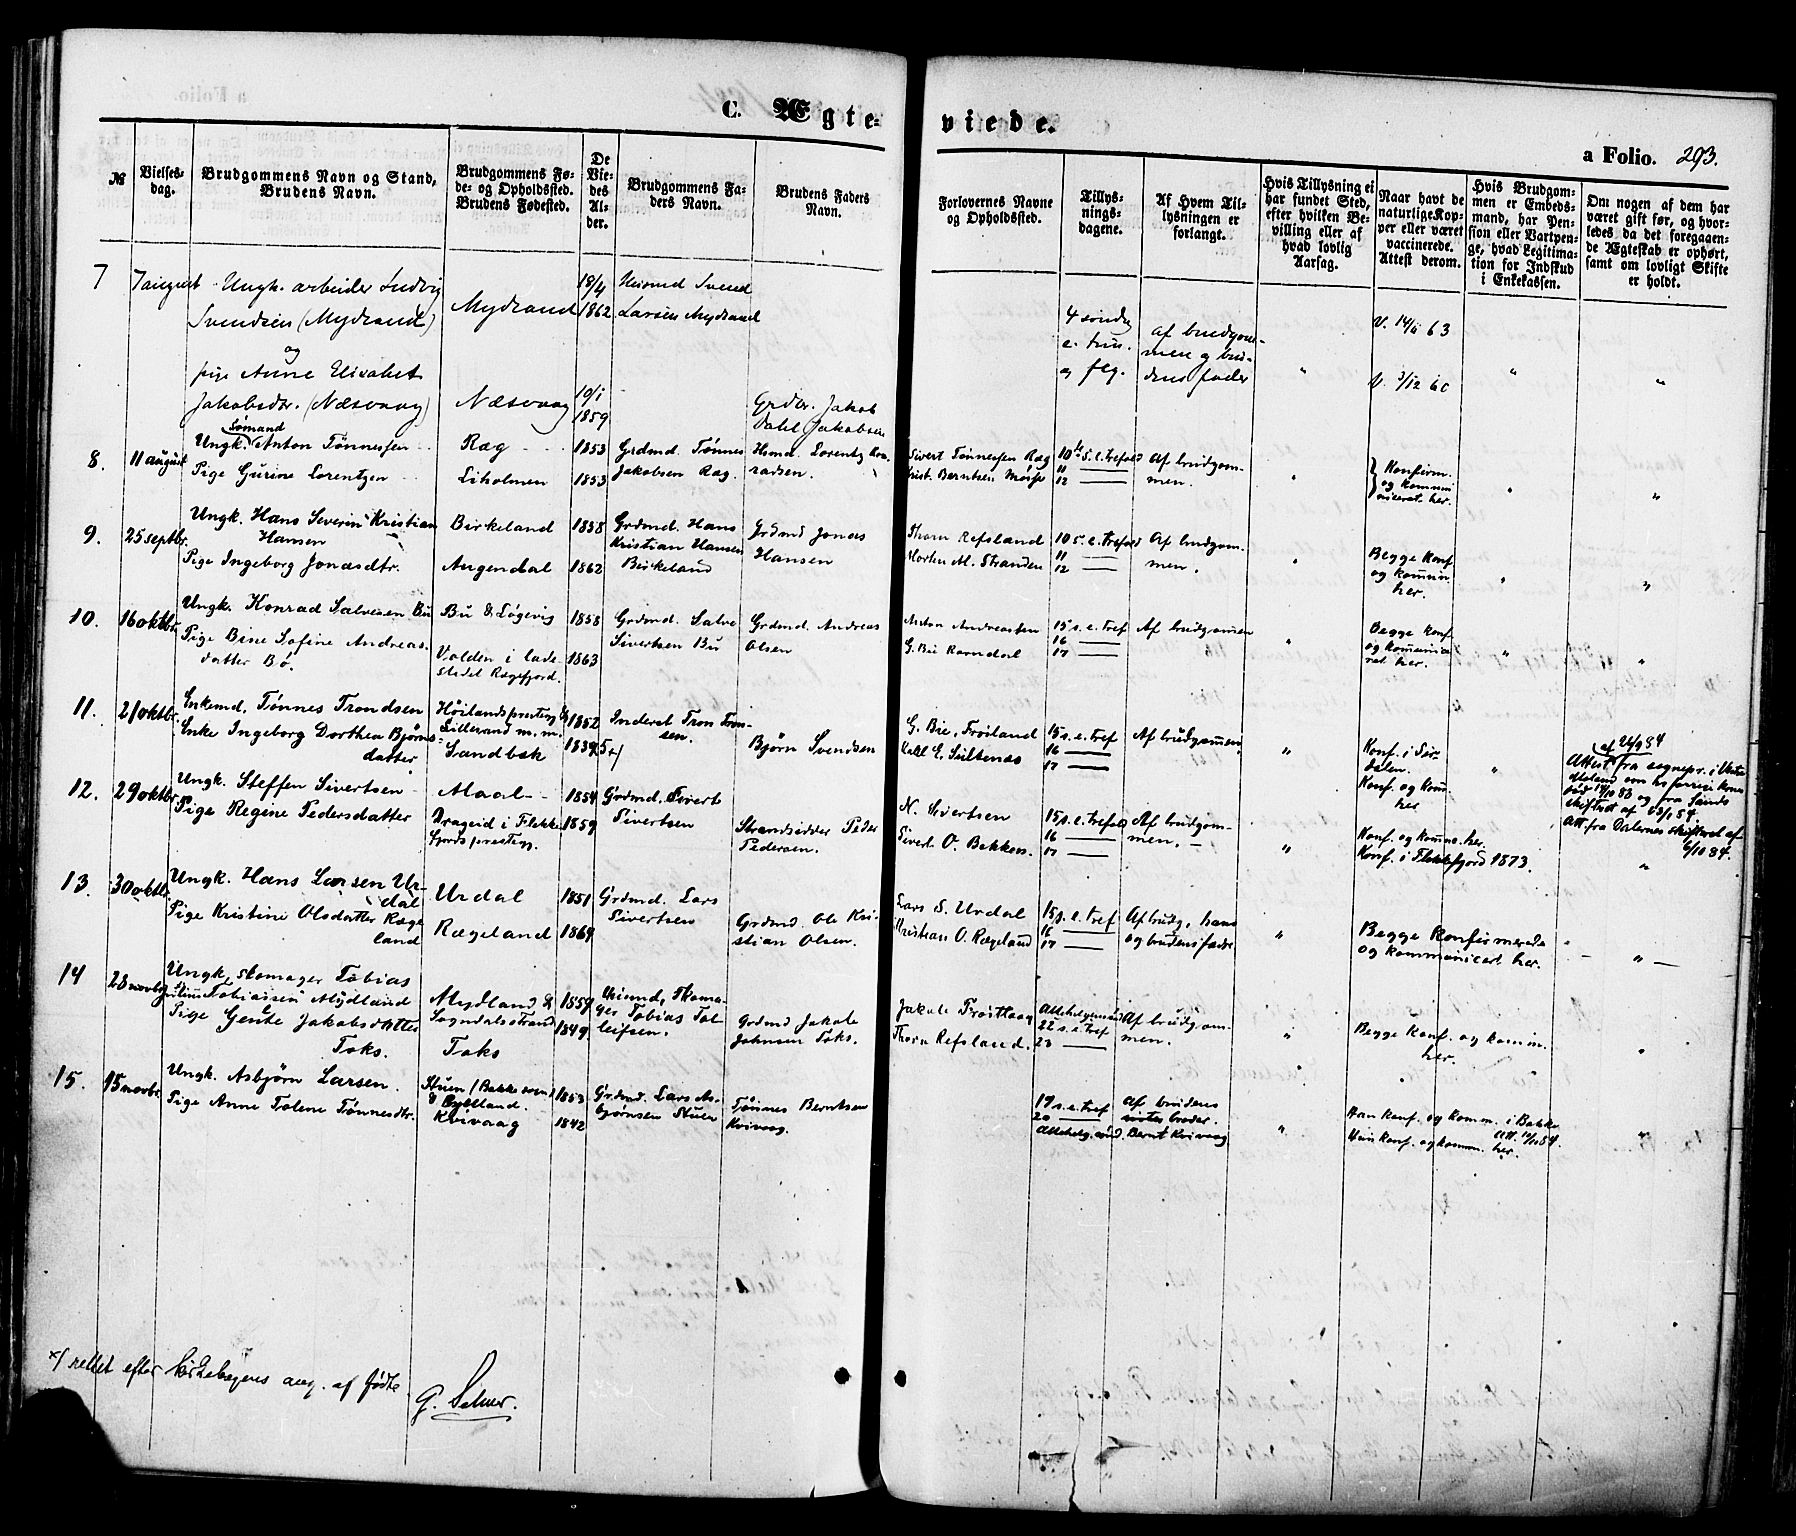 C. Ægte-
viede.
a Folio. 293.
№
Vielses-
dag.
Brudgommens Navn og Stand,
Brudens Navn.
Brudgommens Fø-
de- og Opholdssted.
Brudens Fødested.
De
Vie-
des
Al-
der.
Brudgommens Fa-
ders Navn.
Brudens Faders
Navn.
Forlovernes Navne
og Opholdssted.
Tillys-
nings-
dagene.
Af Hvem Til-
lysningen er
forlangt.
Hvis Tillysning ei
har fundet Sted,
efter hvilken Be-
villing eller af
hvad lovlig
Aarsag.
Naar havt de
naturlige Kop-
per eller været
vaccinerede.
Attest derom.
Hvis Brudgom-
men er Embeds-
mand, har Pen-
sion eller Vartpen-
ge, hvad Legitima-
tion for Indskud
i Enkekassen.
Om nogen af dem har
været gift før, og hvor-
ledes da det foregaaen-
de Ægteskab er ophørt,
samt om lovligt Skifte
er holdt.
7 7 august Ungk. arbeider Ludvig
Svendsen (Mydland)
og
pige Anne Elisabet
Jakobsdtr. (Næsvaag)
Mydland
Næsvaag
18/4
1862
19/1
1859
Husmd Svend
Larsen Mydland
Grdbr. Jakob
Dahl Jakobsen
4 søndg
e. trin.
og flg.
af brudgom-
men og bru-
dens fader
V. 14/11 63
V. 3/12 60
8. 11 august
Sømand
Ungk. Anton Tønnessen
Pige Gurine Lorentzen
Ræg
Liholmen
1853
1853
Grdmd Tønnes
Jakobsen Ræg
Hsmd. Lorentz Kon-
radsen.
Sivert Tønnessen Ræg
Krist. Berntsen
10de S. e. trefold
11
12
Af brudgom-
men.
Konfirm.
og kommu-
niceret her.
9. 25 septbr.
Ungk. Hans Severin Kristian
Hansen
Pige Ingeborg Jonasdtr.
Birkeland
Augendal
1858
1862
Grdmd. Hans
Kristian Hansen
Birkeland
Grdmd Jonas
Hansen
Thorn Refsland
Morten M. Stranden
10 s. e. trefold
11
12
Af brudgom-
men.
Begge Konf
og kommun.
her.
10. 16 oktbr.
Ungk. Konrad Salvesen Bu
Pige Bine Sofine Andreas-
datter Bø.
Bu & Løgevig
Valden i lade-
stedet Rægefjord.
1858
1863
Grdmd. Salve
Sivertsen Bu
Grdmd. Andreas
Olsen
Anton Andreassen
G. Bie Ramdal
15 s. e. tref
16
17
Af brudgommen
Begge Konf.
og kommunice-
ret her.
11. 21 oktbr.
Enkemd. Tønnes Trondsen
Enke Ingeborg Dorthea Bjørns-
datter
Høilands prestegj. &
Lillesand m. m.
Sandbek
1852
1839
Inderst Tron Tron-
sen.
Bjørn Svendsen
G. Bie, Frøiland
15 s. e. tref
16
17
Af brudgommen
Konf. i Sir-
dalen.
Konf. og kom.
her
af 24/9 84
Attest fra sognepr. i
og fra
skifteret af
Att. fra Dalernes skifteret af
6/10 84.
12. 29 oktbr.
Ungk. Steffen Sivertsen
Pige Regine Pedersdatter
Maal
Drageid i Flekke-
fjords prestegj.
1854
1859
Grdmd. Sivert
Sivertsen
Strandsidder Peder
Pedersen.
N. Sivertsen
Sivert O. Bakken.
15 s. e. trefold
16
17
Af brudgom-
men.
Konf. og komm. her.
Konf. i Flekkefjord 1873.
13. 30 oktbr.
Ungk. Hans Larsen Ur-
dal
Pige Kristine Olsdatter Ræge
land
Urdal
Rægeland
1851
1864
Grdmd. Lars
Sivertsen
Grdmd. Ole Kri-
stian Olsen.
Lars S. Urdal
Kristian O. Rægeland
15 s. e. tref
16
17
Af brudg. hans
og brudens fader
Begge Konfirmerede
og kommunicert. her.
14 28 novbr
Ungk. skomager Tobias
Tobiassen Mydland
Pige Gente Jakobsdatter
Toks.
Mydland &
Sogndalsstrand
Toks
1859
1849
Husmd, skoma-
ger Tobias Tol-
leifsen.
Grdmd Jakob
Johnsen Toks.
Jakob Frøitland
Thorn Refsland.
Allehelgensd
22 s. e. tref
23
Af brudgom-
men.
Begge Konf. og komm.
her.
15. 15 novbr.
Ungk. Asbjørn Larsen.
Pige Anne Tolene Tønnesdtr.
Stuen (Bakke sogn)
& Egelland.
Kvivaag
1853
1842
Grdmd. Lars As-
bjørnsen Stuen
Tønnes Berntsen
Kvivaag.
19 s. e. tref
20
Allehelg.
Af brudens
broder.
Bernt Kvivaag
Han Konf. og komm. i Bakke
Hun Konf. og komm. her.
x/ rettet efter kirkebogens ang. af fødte
G. Selmer.